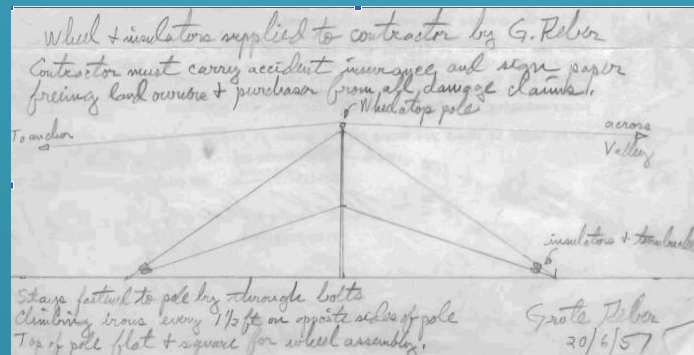 Wheel & insulators supplied to contractor by G. Reber
Contractor must carry accident insurance and sign paper
freeing land owners & purchaser from all damage claims.
Wheel atop pole
To anchor
across
Valley
insulators & turnbuckle
Stays fastened to pole by through bolts
Climbing irons every 1½ ft on opposite sides of pole
Top of pole flat & square for wheel assembly.
Grote Reber
20/6/57